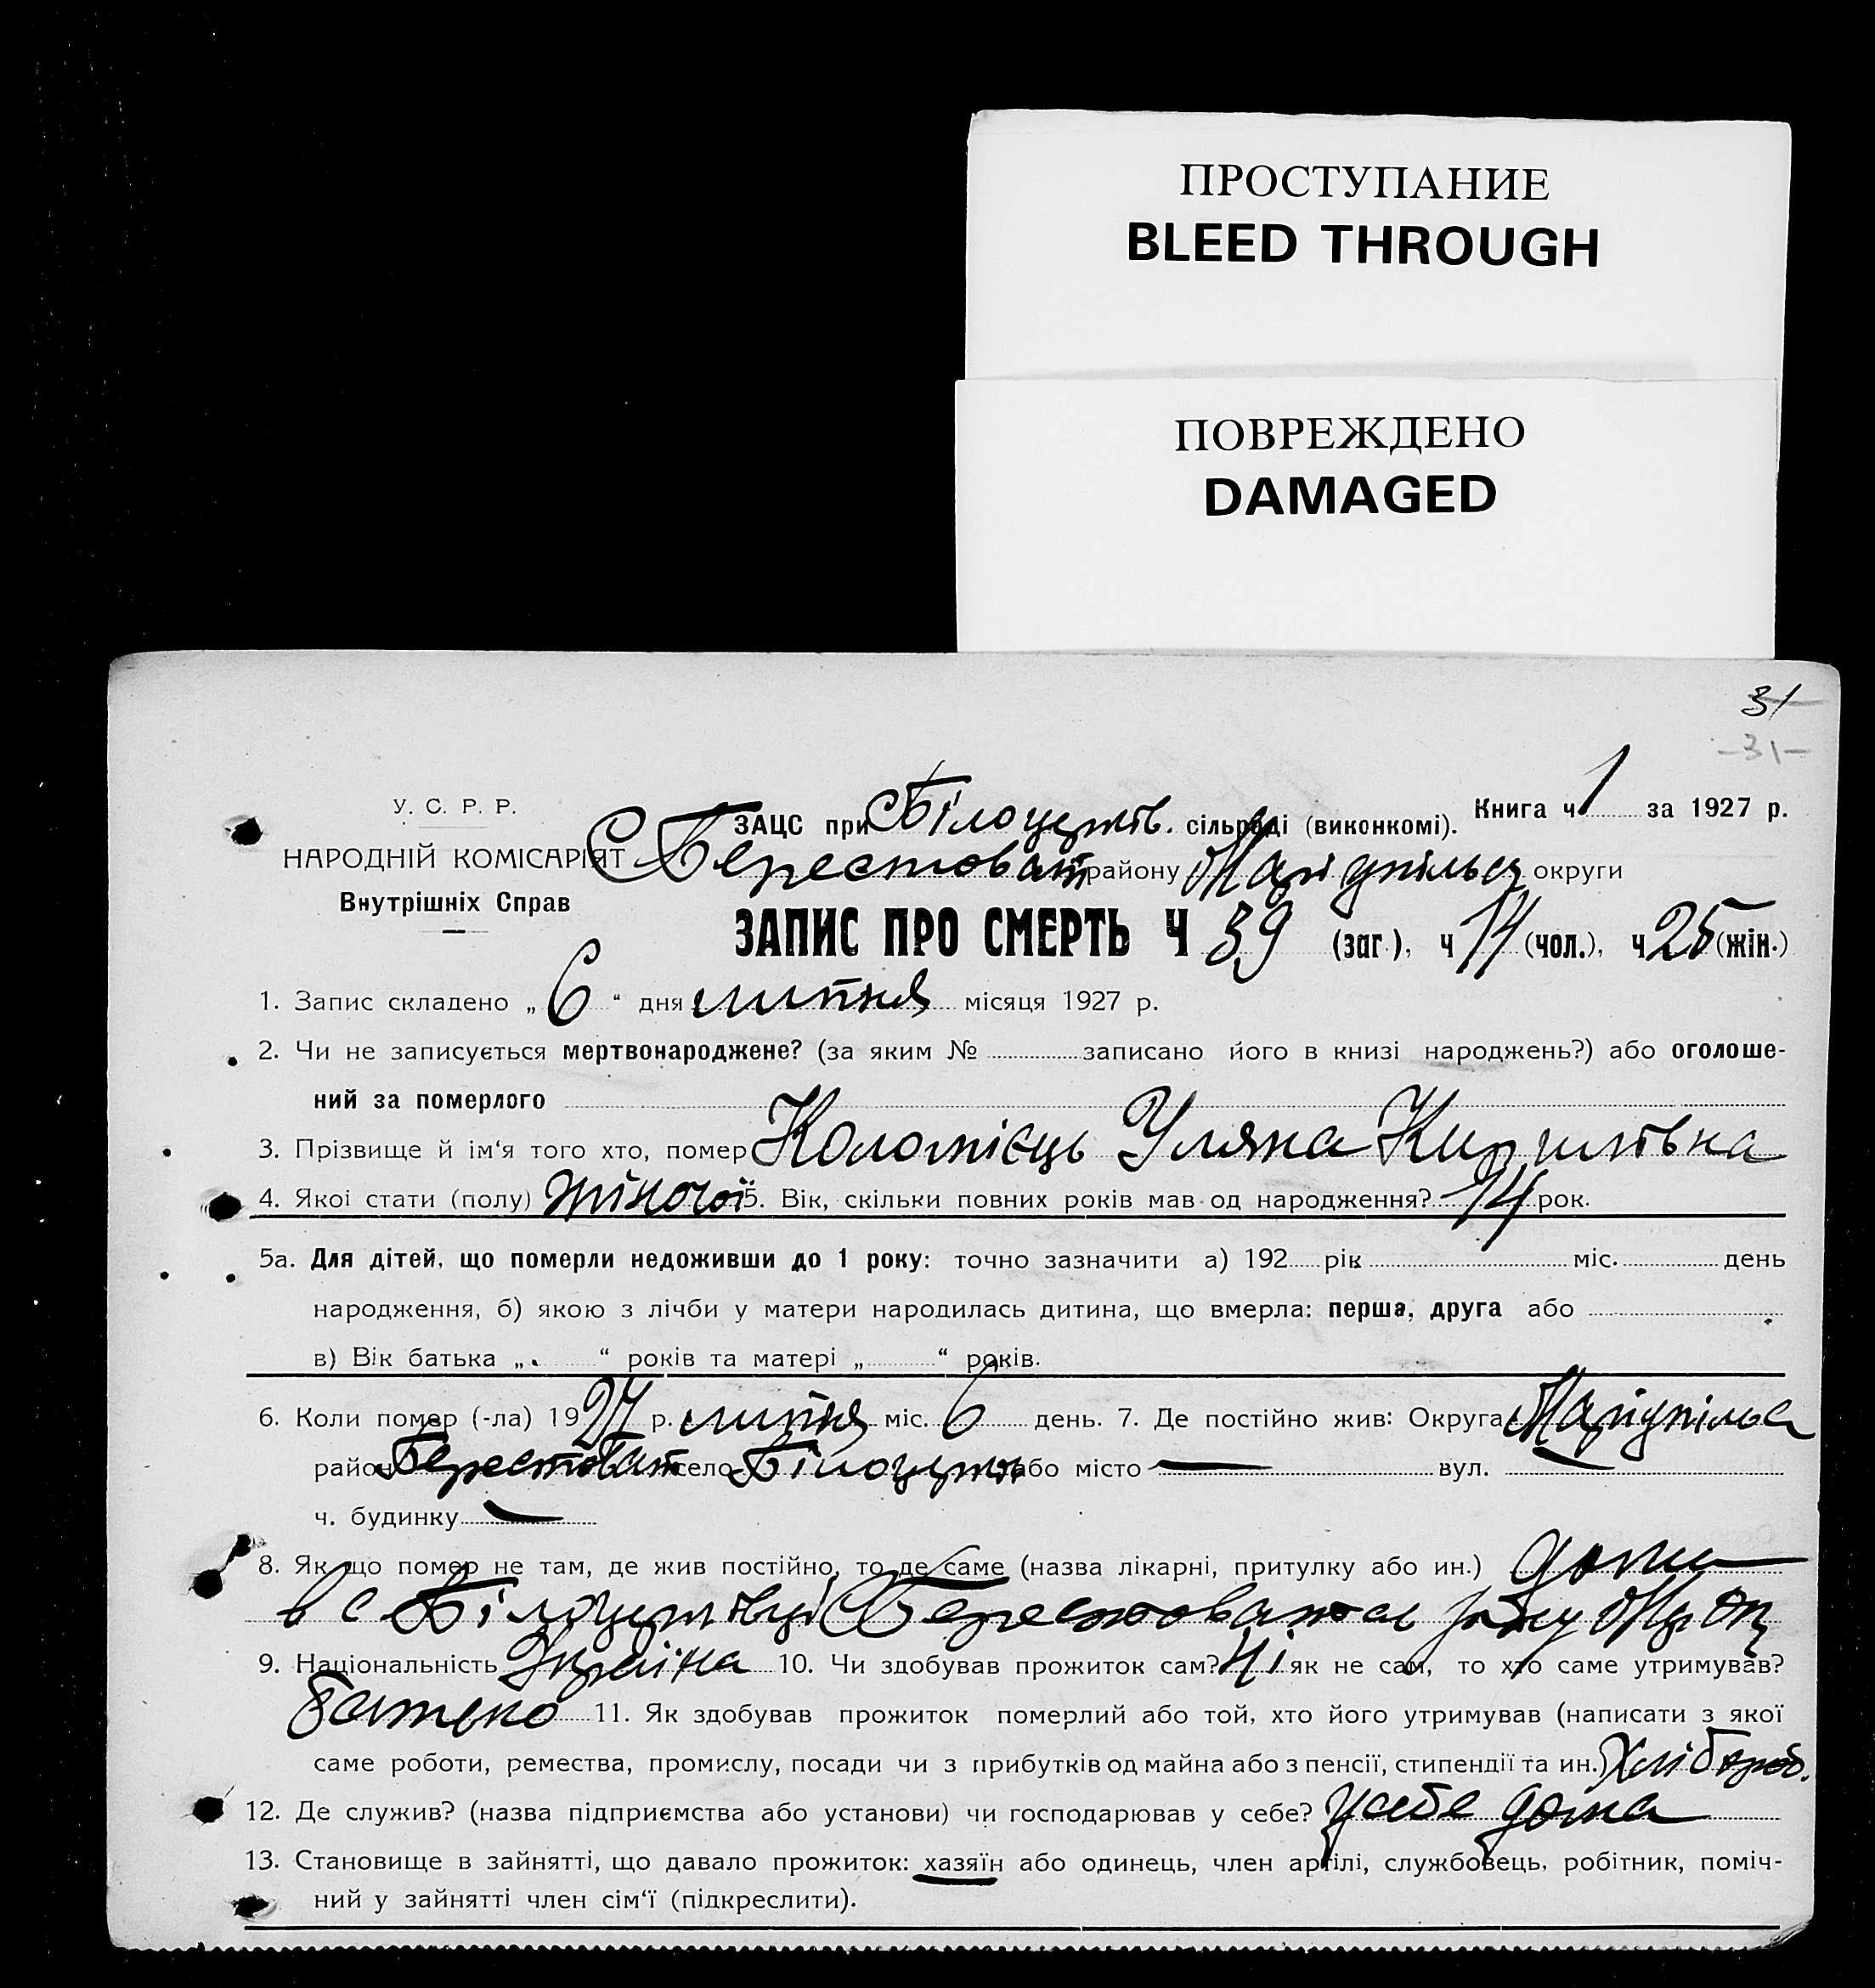 ПРОСТУПАНИЕ
BLEED THROUGH
ПОВРЕЖДЕНО
DAMAGED
31
-31-
У. С. Р. Р.
НАРОДНІЙ КОМІСАРІЯТ
Внутрішніх Справ
ЗАЦС при Білоцерків. сільраді (виконкомі). Книга ч. 1 за 1927 р.
Берестоват району Маріупільс округи
ЗАПИС ПРО СМЕРТЬ Ч 39 (заг.), ч 14 (чол.), ч 25 (жін.)
1. Запис складено „ 6 “ дня липня місяця 1927 р.
2. Чи не записується мертвонароджене? (за яким № записано його в книзі народжень?) або оголоше-
ний за померлого
3. Прізвище й ім‘я того хто, помер Коломієць Уляна Кирилівна
4. Якої стати (полу) жіночої 5. Вік, скільки повних років мав од народження? 14 рок.
5а. Для дітей, що померли недоживши до 1 року: точно зазначити а) 192 рік міс. день
народження, б) якою з лічби у матери народилась дитина, що вмерла: перша, друга або
в) Вік батька „ “ років та матері „ “ років.
6. Коли помер (-ла) 1927 р. липня міс. 6 день. 7. Де постійно жив: Округа Маріупільс
район Берестоват село або місто — вул. —
ч. будинку —
8. Як що помер не там, де жив постійно, то де саме (назва лікарні, притулку або ин.) дома
в с Берестоватск
9. Національність Україна 10. Чи здобував прожиток сам? Ні як не сам, то хто саме утримував?
батько 11. Як здобував прожиток померлий або той, хто його утримував (написати з якої
саме роботи, ремества, промислу, посади чи з прибутків од майна або з пенсії, стипендії та ин.) хлібороб.
12. Де служив? (назва підприємства або установи) чи господарював у себе? у себе дома
13. Становище в зайнятті, що давало прожиток: хазяїн або одинець, член артілі, службовець, робітник, поміч-
ний у зайнятті член сім‘ї (підкреслити).